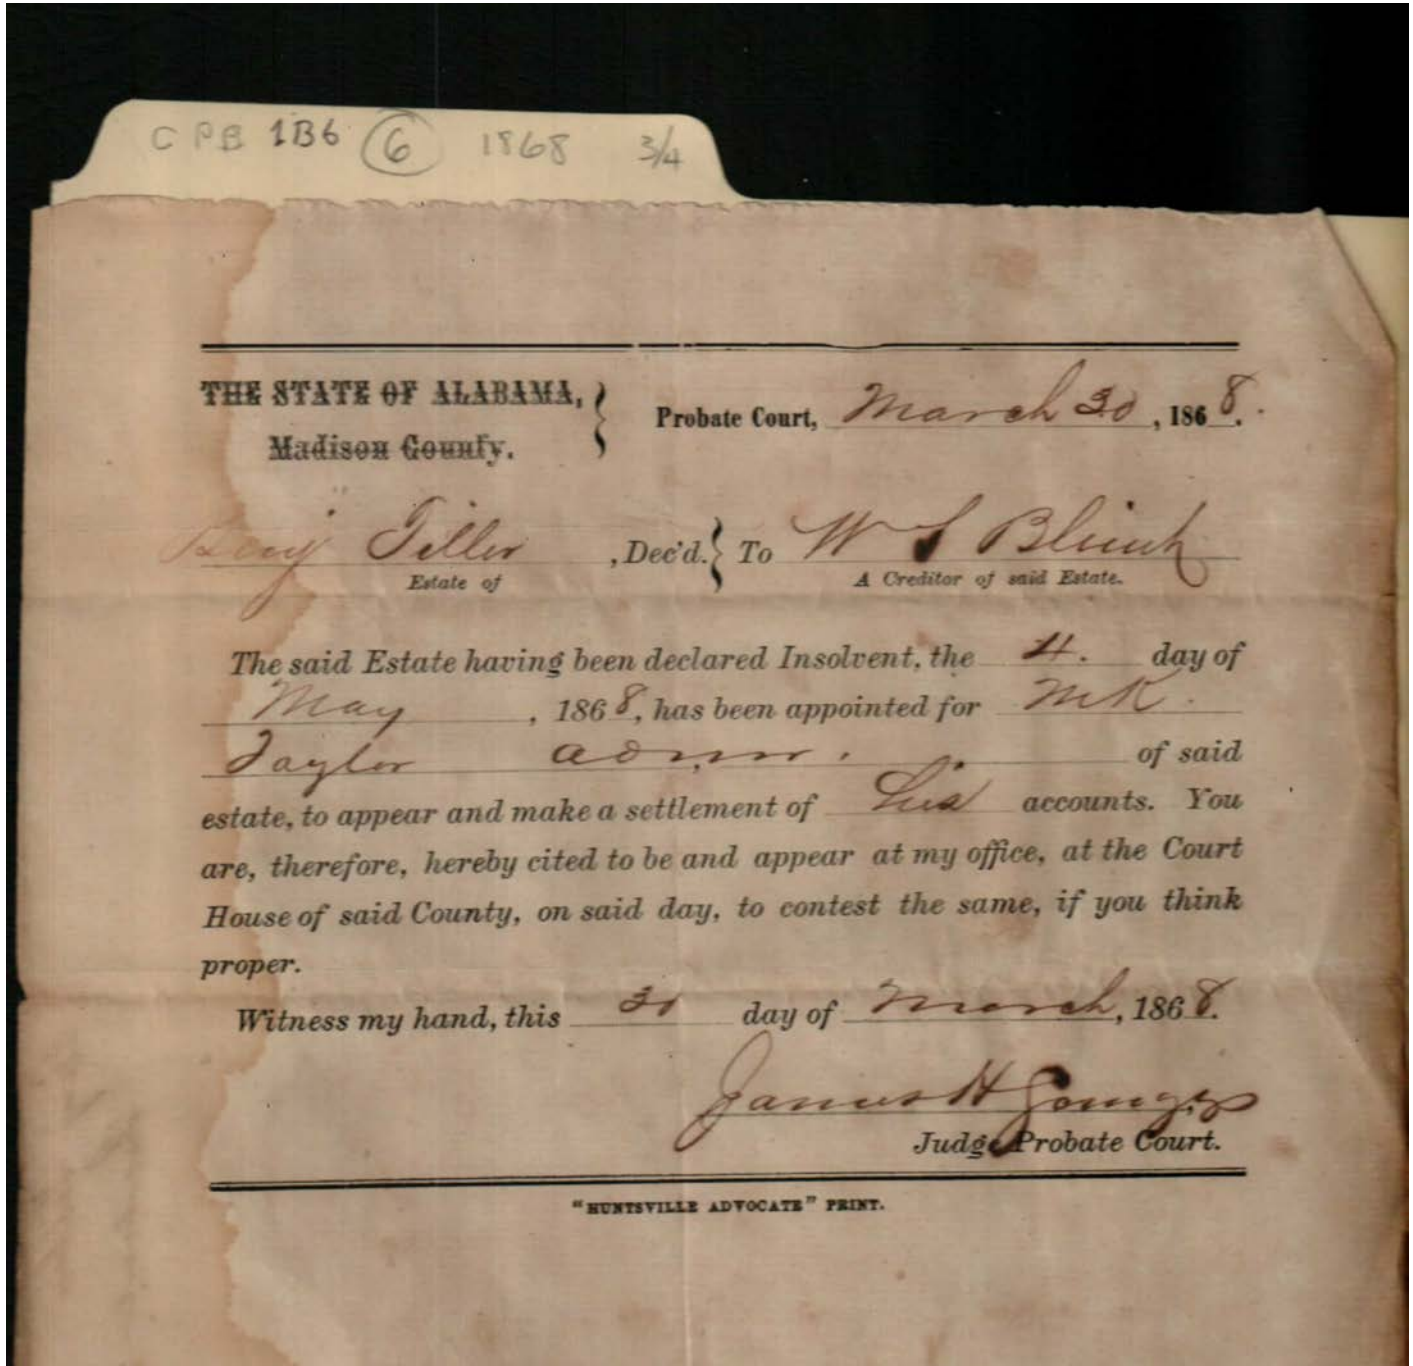 C P B 1B6 6 1868 3/4
THE STATE OF ALABAMA,
Madison County.
Probate Court, March 30, 1868.
Benj Tiller, Dec'd. To W S
Estate of
A Creditor of said Estate.
The said Estate having been declared Insolvent, the 4. day of
May, 1868, has been appointed for
Taylor admr. of said
estate, to appear and make a settlement of his accounts. You
are, therefore, hereby cited to be and appear at my office, at the Court
House of said County, on said day, to contest the same, if you think
proper.
Witness my hand, this 30 day of March, 1868.
James H
Judge Probate Court.
"HUNTSVILLE ADVOCATE" PRINT.